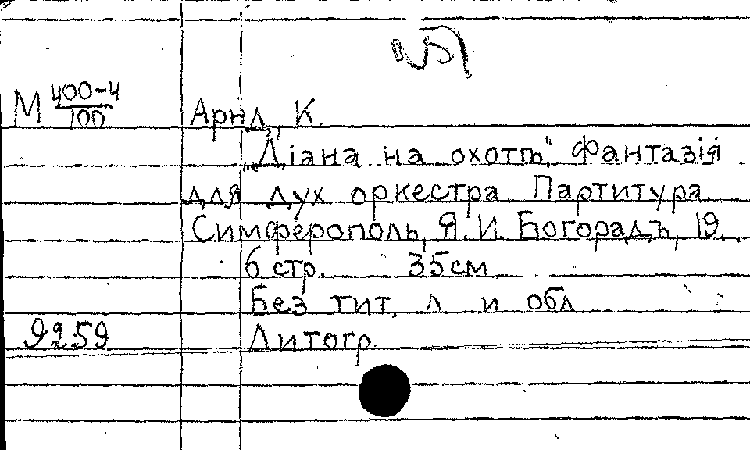 М 400-4/100
Арнд, К.
„Діана на охотѣ" Фантазія
для дух оркестра Партитура
Симферополь, Я. И. Богорадъ, 19.
6 стр. 35 см
Без тит. л и обл
9259
Литогр.